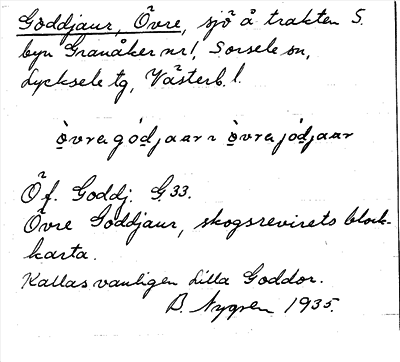 Goddjaur, Övre, sjö å trakten S.
byn Granåker nr 1, Sorsele sn,
Lycksele tg, Västerb. l.
ö̀vragódjaar ~ ö̀vrajódjaar
Öf. Goddj. G. 33.
Övre Goddjaur, skogsrevirets block-
karta.
Kallas vanligen Lilla Goddor.
B. Nygren 1935.